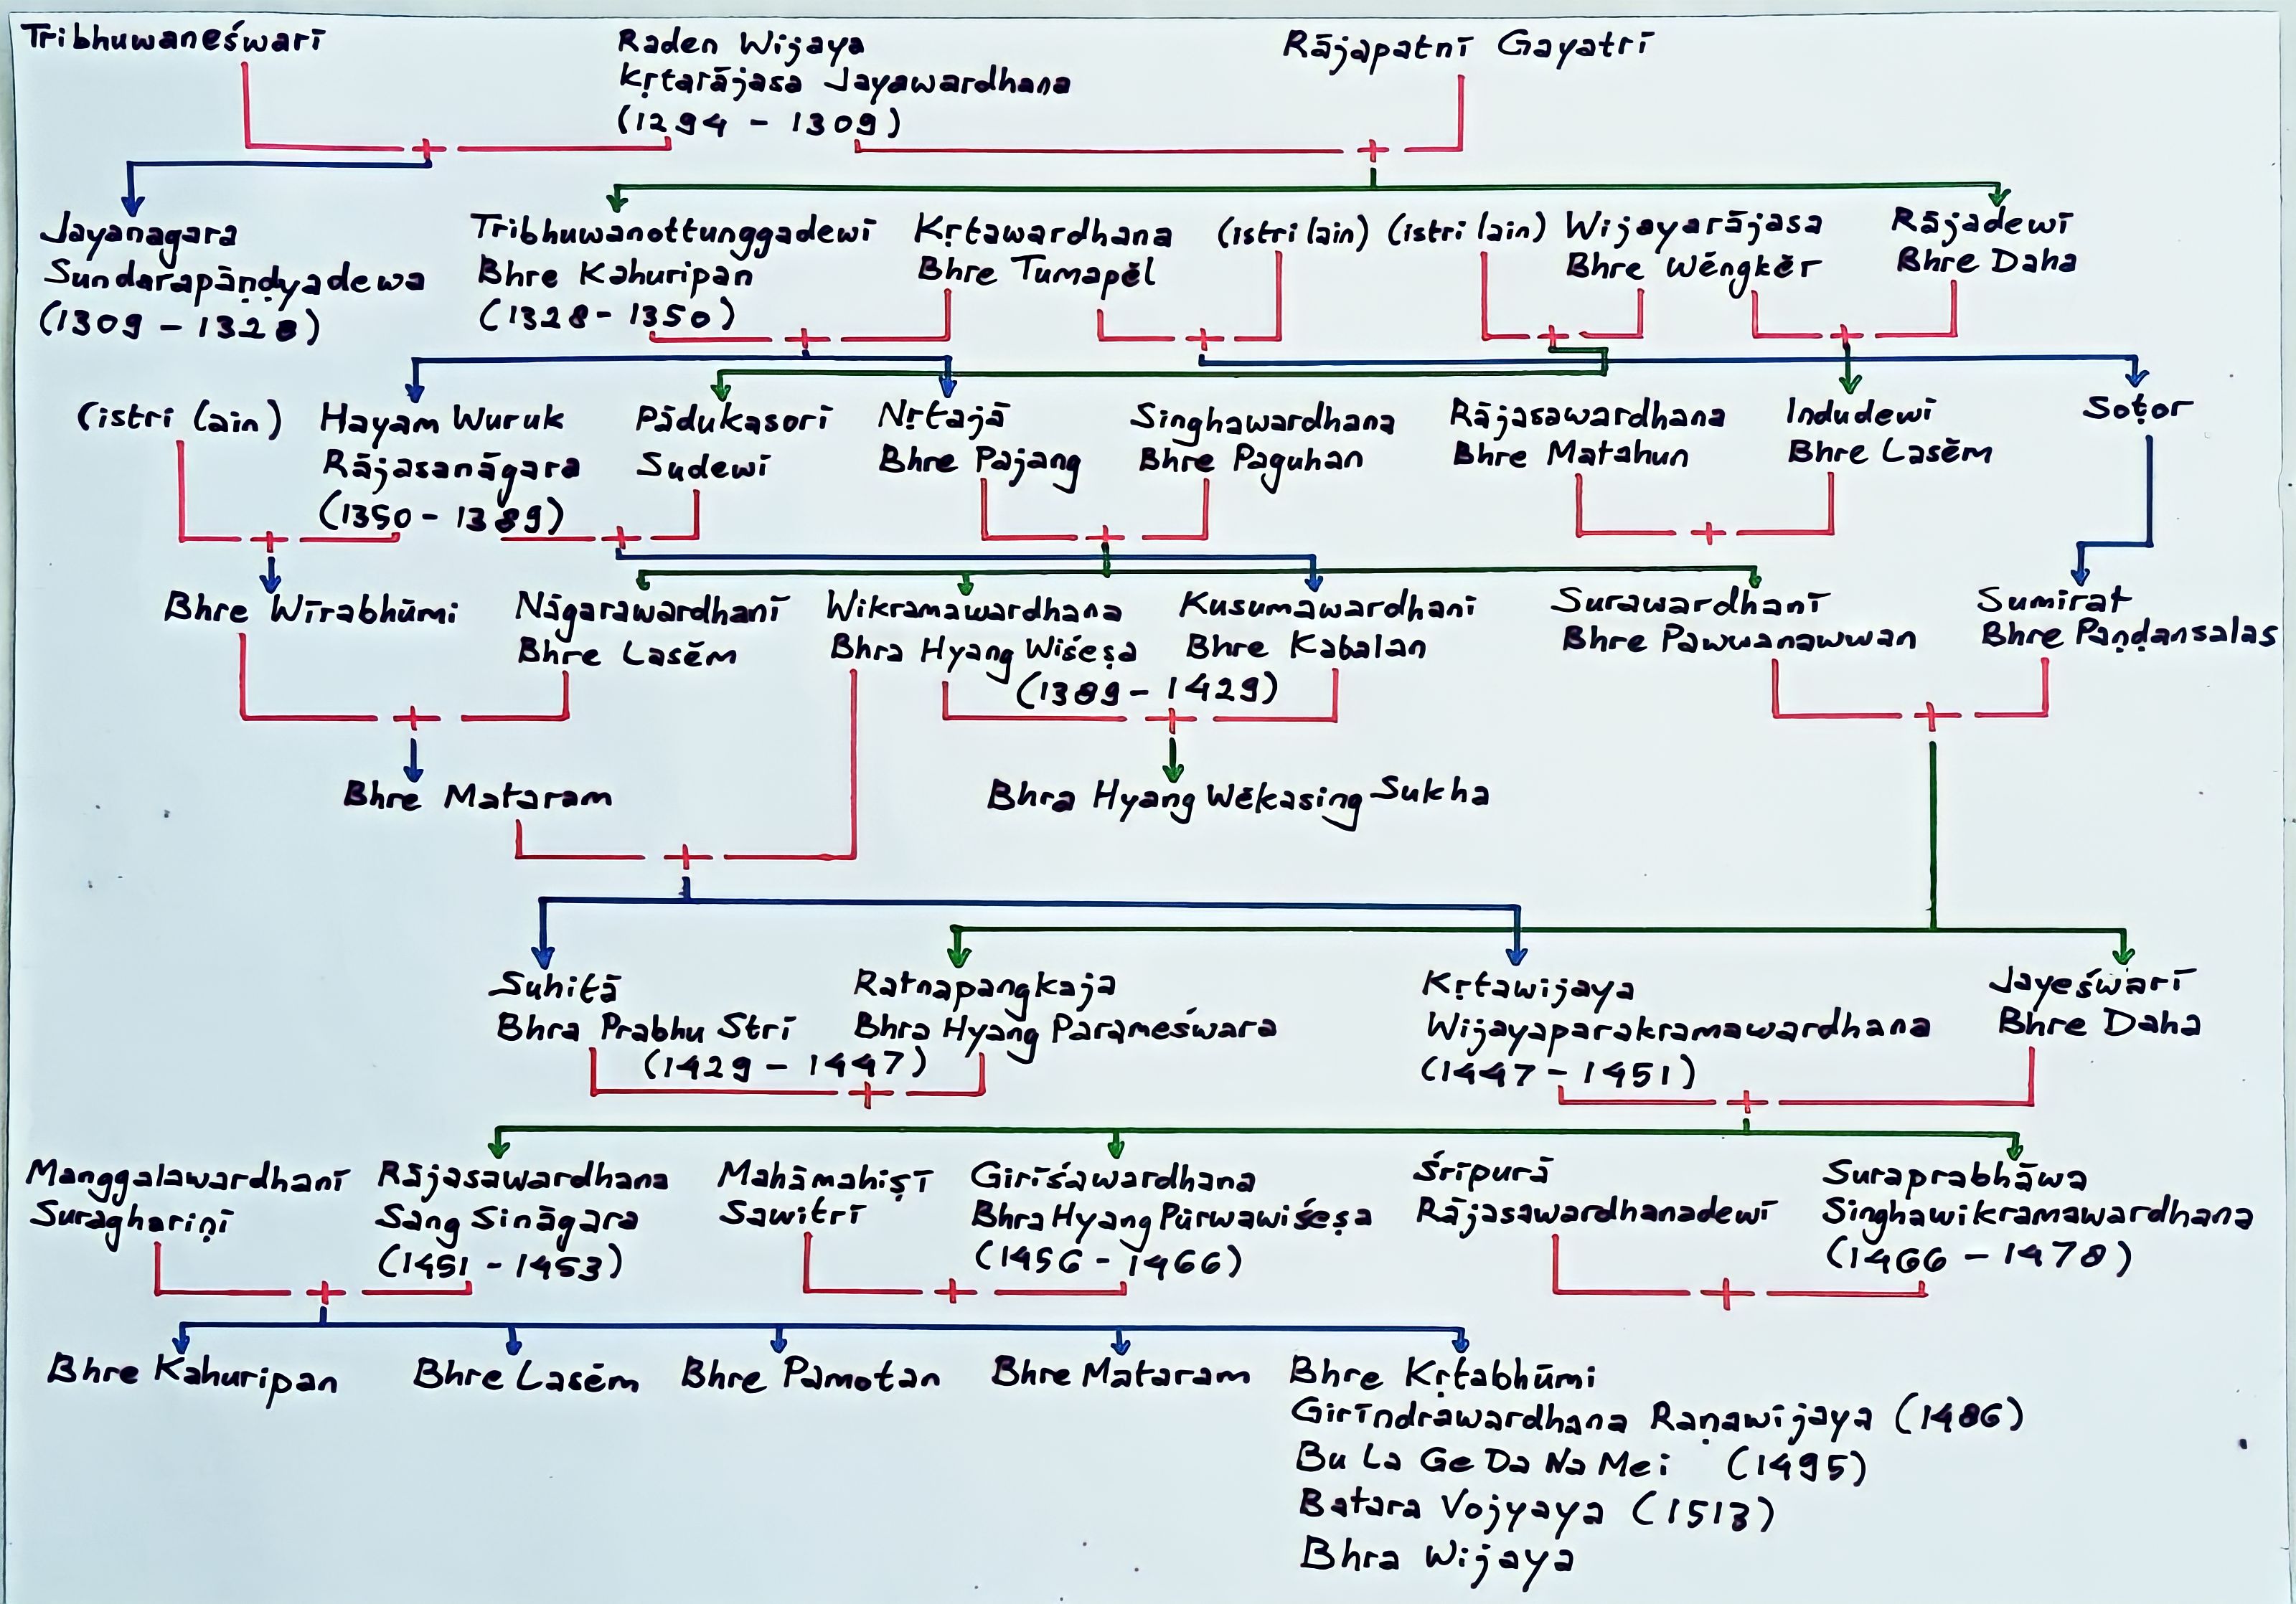 Tribhuwaneśwarī
Raden Wijaya
Kṛtarājasa Jayawardhana
(1294 - 1309)
Rājapatnī Gayatrī
Jayanagara
Sundarapāṇḍyadewa
(1309 - 1328)
Tribhuwanottunggadewī
Bhre Kahuripan
(1328 - 1350)
Kṛtawardhana
Bhre Tumapĕl
(istri lain)
(istri lain)
Wijayarājasa
Bhre Wĕngkĕr
Rājadewī
Bhre Daha
(istri lain)
Hayam Wuruk
Rājasanāgara
(1350 - 1389)
Pādukasorī
Sudewī
Nṛtajā
Bhre Pajang
Singhawardhana
Bhre Paguhan
Rājasawardhana
Bhre Matahun
Indudewī
Bhre Lasĕm
Soṭor
Bhre Wīrabhūmi
Nāgarawardhanī
Bhre Lasĕm
Wikramawardhana
Bhra Hyang Wiśeṣa
Kusumawardhanī
Bhre Kabalan
(1389 - 1429)
Surawardhanī
Bhre Pawwanawwan
Sumirat
Bhre Paṇḍansalas
Bhre Mataram
Bhra Hyang Wĕkasing Sukha
Suhitā
Bhra Prabhu Strī
Ratnapangkaja
Bhra Hyang Parameśwara
(1429 - 1447)
Kṛtawijaya
Wijayaparakramawardhana
(1447 - 1451)
Jayeśwarī
Bhre Daha
Manggalawardhanī
Suraghariṇī
Rājasawardhana
Sang Sināgara
(1451 - 1453)
Mahāmahiṣī
Sawitrī
Girīśawardhana
Bhra Hyang Pūrwawiśeṣa
(1456 - 1466)
Śrīpurā
Rājasawardhanadewī
Suraprabhāwa
Singhawikramawardhana
(1466 - 1478)
Bhre Kahuripan
Bhre Lasĕm
Bhre Pamotan
Bhre Mataram
Bhre Kṛtabhūmi
Girīndrawardhana Raṇawijaya (1486)
Bu La Ge Da Na Mei (1495)
Batara Vojyaya (1513)
Bhra Wijaya